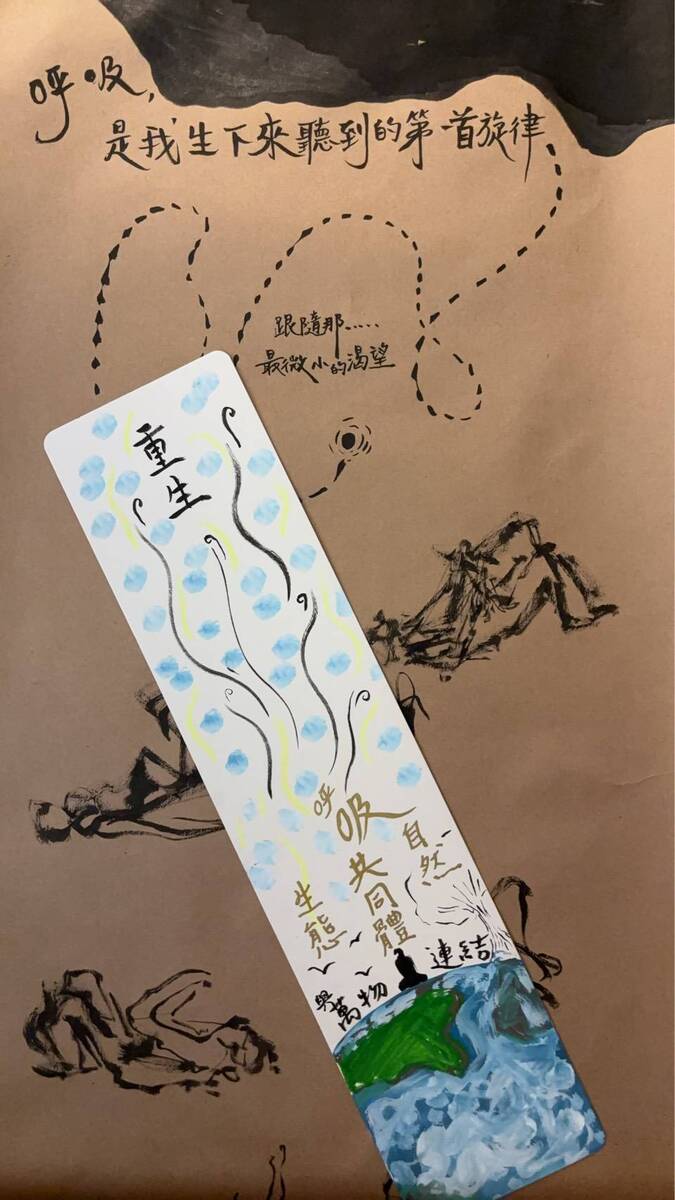 呼吸,
是我生下來聽到的第一首旋律
跟隨那......
最微小的渴望
重生
呼吸共同體
自然
生態
與萬物
連結